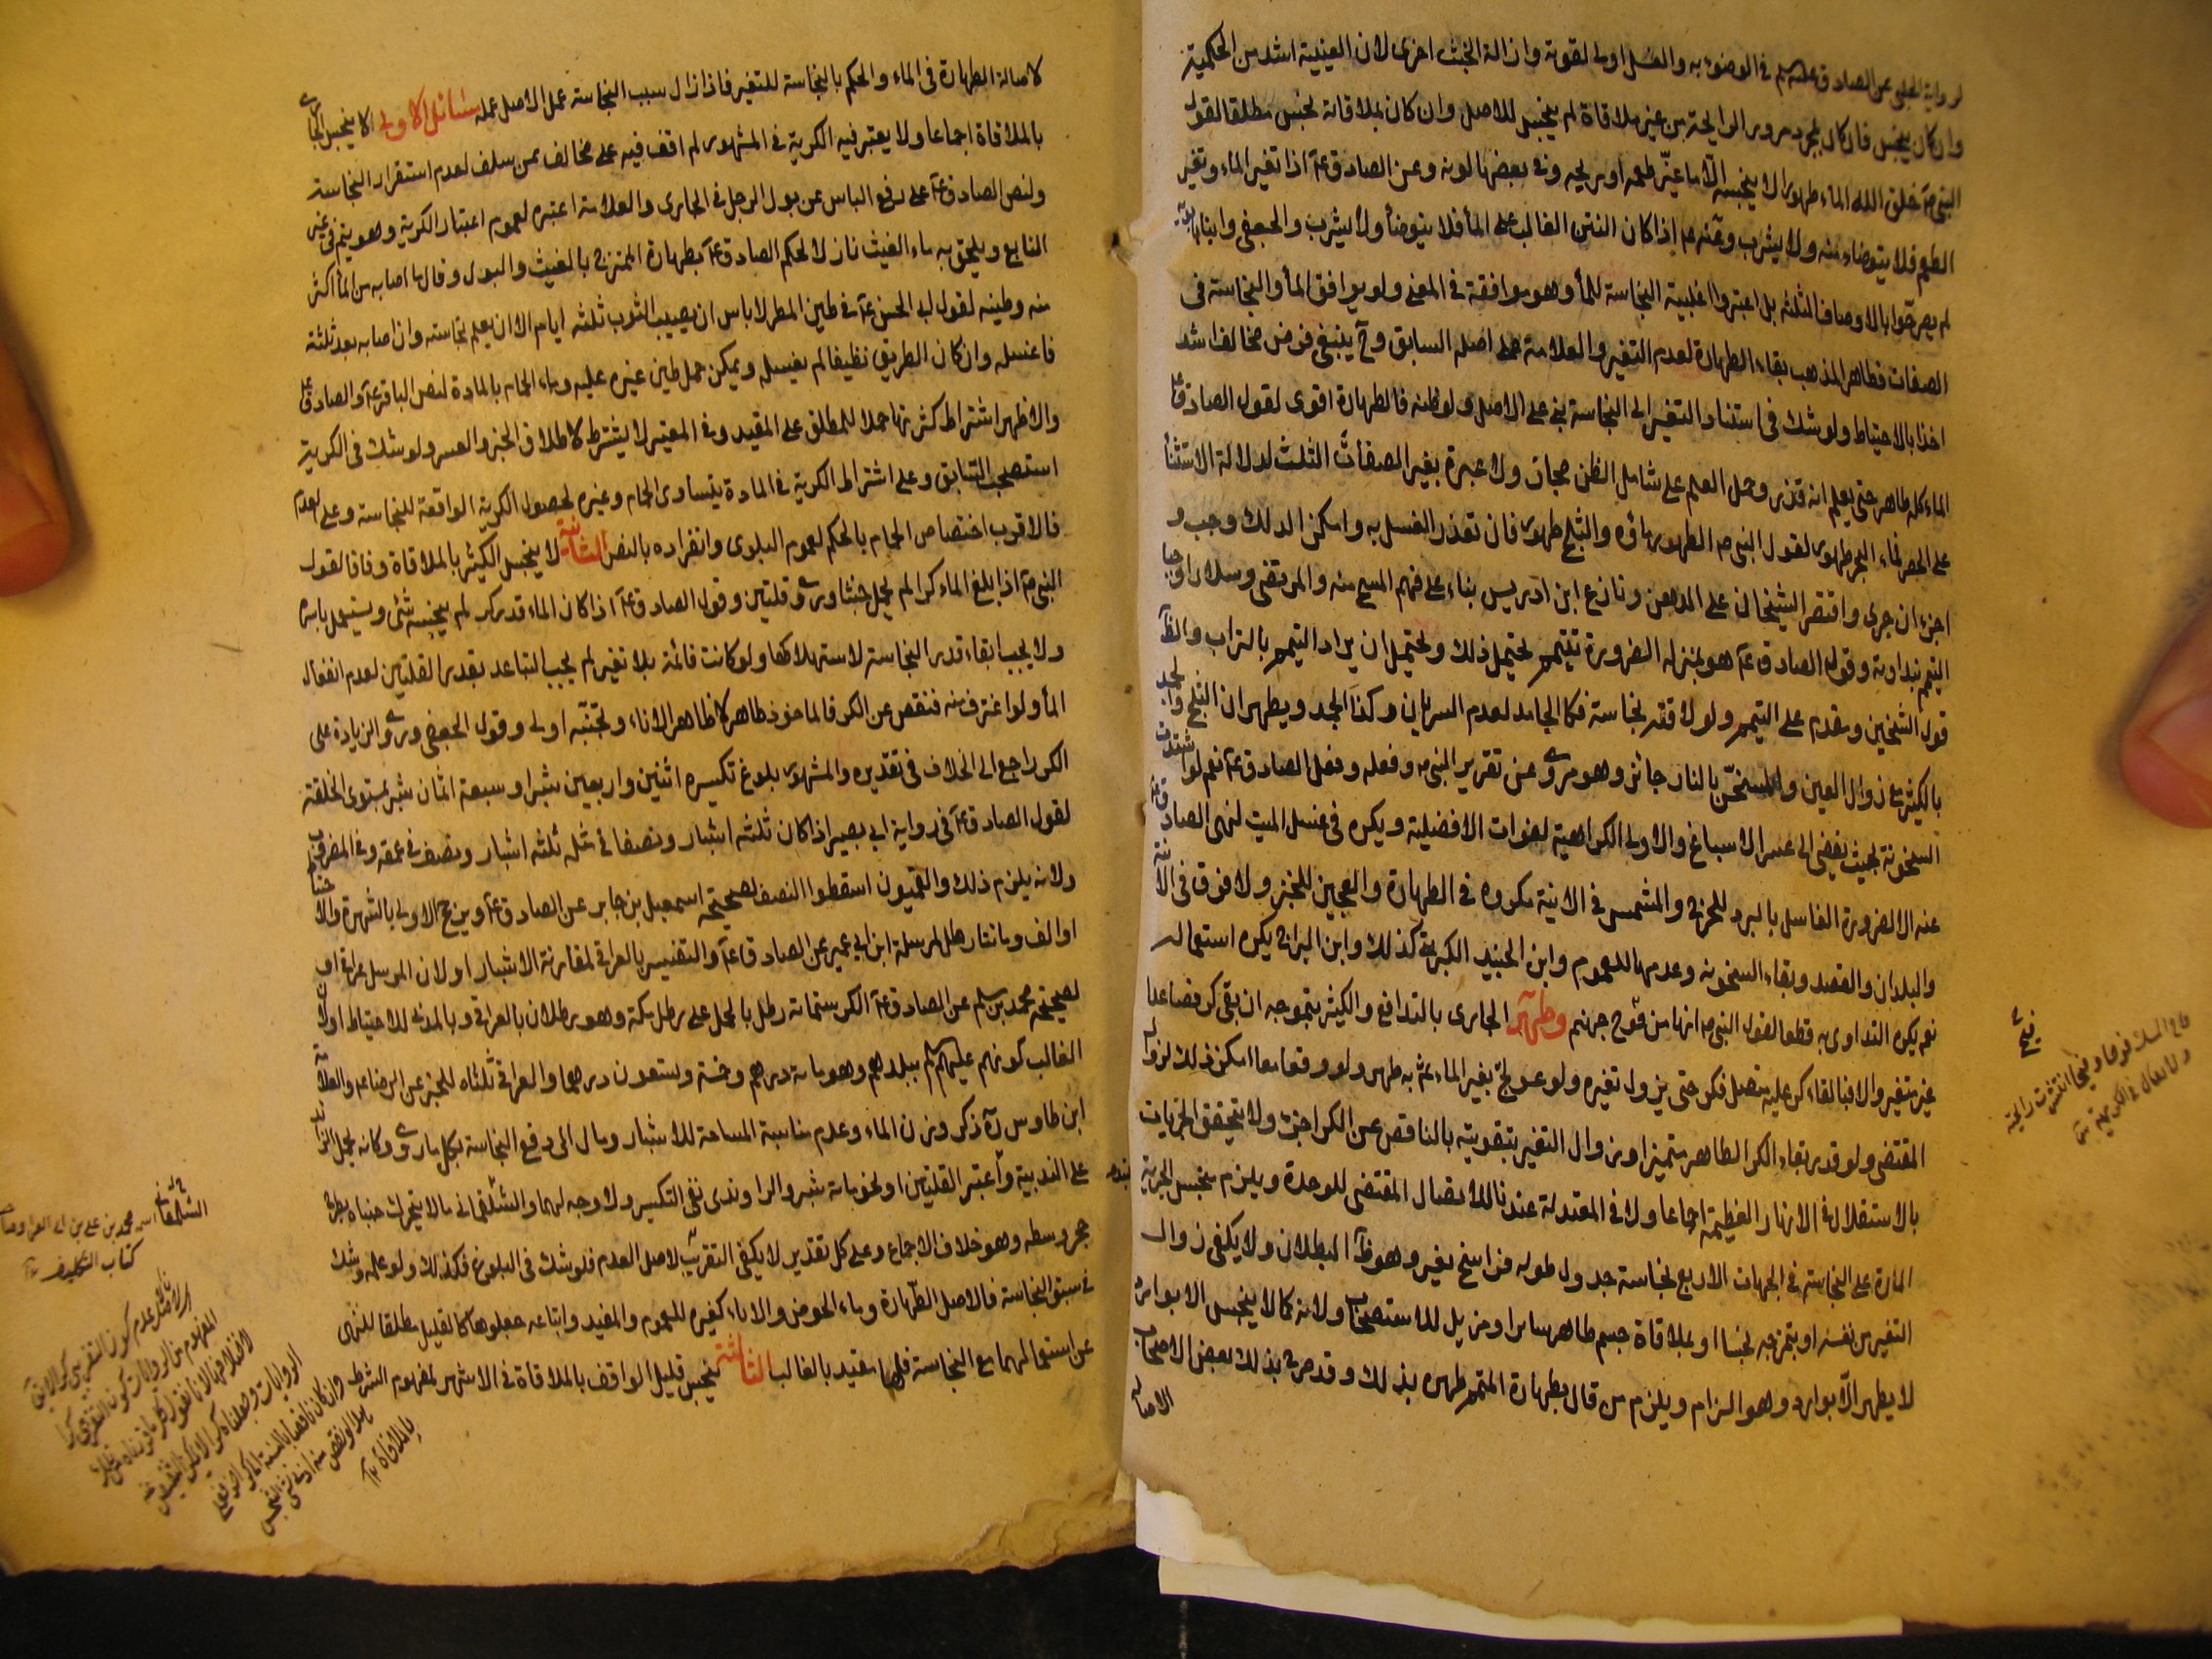 لرواية الحلبي عن الصادق عليه السلم في الوضوء به والغسل اولى لقوته وازالة الخبث احرى لان العينية اشد من الحكمية
وان كان ينجس فان كان بمجرد مرور الرايحة من غير ملاقاة لم ينجس للاصل وان كان بملاقاته لنجس مطلقا لقول
النبي ص خلق الله الماء طهورا لا ينجسه الا ما غيّر طعمه او ريحه وفي بعضها لونه وعن الصادق ع اذا تغير الماء وتغير
الطعم فلا يتوضاء منه ولا يشرب وعنه ع اذا كان النتن الغالب على الماء فلا يتوضأ ولا يشرب والجعفي وابنا بابويه
لم يصرحوا بالاوصاف الثلثة بل اعتبروا اغلبية النجاسة للماء وهو موافقة في المعنى ولو يوافق الماء والنجاسة في
الصفات فظاهر المذهب بقاء الطهارة لعدم التغير والعلامة على اصله السابق وح ينبغي فرض مخالف اشد
اخذا بالاحتياط ولو شك في استناد التغير الى النجاسة بنى على الاصل ولو ظنه فالطهارة اقوى لقول الصادق ع
الماء كله طاهر حتى يعلم انه قذر وحمل العلم على شامل الظن مجاز ولا عبرة بغير الصفات الثلث لدلالة الاستثنا
على الحصر فماء البحر طهور لقول النبي ص الطهور ماؤه والثلج طهور فان تعذر الغسل به وامكن الدلك وجب و
اجزء ان جرى واقتصر الشيخان على الدهن ونازع ابن ادريس بناء على فهم المسح منه والمرتضى وسلار اوجبا
التيمم بنداوته وقول الصادق ع هو بمنزلة الضرورة تيتمم يحتمل ذلك ويحتمل ان يراد التيمم بالتراب والظ
قول الشيخين ويقدم على التيمم ولو لاقته نجاسة فكالجامد لعدم السريان وكذا الجمد ويطهران الثلج والجمد
بالكثير مع زوال العين والمسخّن بالنار جائز وهو مروي عن تقرير النبي ص وفعله وفعل الصادق ع نعم لو اشتدت
السخونة بحيث يفضي الى عسر الاسباغ والاولى الكراهية لفوات الافضلية ويكره في غسل الميت لنهي الصادق ع
عنه الا لضرورة الغاسل بالبرد للحرج والمشمس في الآنية مكروه في الطهارة والعجين للخبر ولا فرق في الآنية
والبلدان والقصد وبقاء السخونة وعدمها للعموم وابن الجنيد الكبريتية كذلك وابن البراج يكره استعماله
نعم يكره التداوي به قطعا لقول النبي ص انها من فوح جهنم وطهر الجاري بالتدافع والكثير بتموجه ان بقي كر فصاعدا
غير متغير والا فبالقاء كر عليه متصل فكر حتى يزول تغيره ولو عولج بغير الماء ثم به طهر ولو وقعا معا امكن ذلك لزوال
المقتضي ولو قدر بقاء الكر الطاهر متميزا وزوال التغير بتقويته بالناقص عن الكر اجزء ولا يتحقق الجريات
بالاستقلال في الانهار العظيمة اجماعا ولا في المعتدلة عندنا للاتصال المقتضي للوحدة ويلزم تنجس الجرية
المارة على النجاسة في الجهات الاربع نجاسة جدول طوله فراسخ بغير وهو ظ البطلان ولا يكفي زوال
التغير من نفسه او بتموجه نجسا او بملاقاة جسم طاهر ساترا ومزيل للاستصحاب ولانه كما لا ينجس الا بوارد
لا يطهر الا بوارد وهو الزام ويلزم من قال بطهارة المتمم طهره بذلك وقد صرح بذلك بعض الاصحاب
الاصالة
فيح
فاح المسك فوحا وفيحا انتشرت رائحته
ولا يقال في الكريهة
لاصالة الطهارة في الماء والحكم بالنجاسة للتغير فاذا زال سبب النجاسة عمل الاصل عمله مسائل الاولى لا ينجس الجاري
بالملاقاة اجماعا ولا يعتبر فيه الكرية في المشهور لم اقف فيه على مخالف ممن سلف لعدم استقرار النجاسة
ولنص الصادق ع على رفع الباس عن بول الرجل في الجاري والعلامة اعتبره لعموم اعتبار الكرية وهو يتم في غير
النابع ويلحق به ماء الغيث نازلا لحكم الصادق ع بطهارة الممتزج بالغيث والبول وقال ما اصابه من الماء اكثر
منه وطينه لقول ابي الحسن ع في طين المطر لا باس ان يصيب الثوب ثلثة ايام الا ان يعلم نجاسته وان اصابه بعد ثلثة
فاغسله وان كان الطريق نظيفا لم يغسله ويمكن حمل طين غيره عليه وماء الحمام بالمادة لنص الباقر ع والصادق ع
والاظهر اشتراط كثرتها حملا للمطلق على المقيد وفي المعتبر لا يشترط لاطلاق الخبر والعسر ولو شك في الكرية
استصحب السابق وعلى اشتراط الكرية في المادة يتساوى الحمام وغيره لحصول الكرية الواقعة للنجاسة وعلى العدم
فالاقرب اختصاص الحمام بالحكم لعموم البلوى وانفراده بالنص الثانية لا ينجس الكثير بالملاقاة وفاقا لقول
النبي ص اذا بلغ الماء كرا لم يحمل خبثا وروى قلتين وقول الصادق ع اذا كان الماء قدر كر لم ينجسه شئ ويستعمل باسره
ولا يجب ابقاء قدر النجاسة لاستهلاكها ولو كانت قائمة بلا تغير لم يجب التباعد بقدر القلتين لعدم انفعال
الماء ولو اغترف منه فنقص عن الكر فالماخوذ طاهر كظاهر الاناء وتجنّبه اولى وقول الجعفي وروى الزيادة على
الكر راجع الى الخلاف في تقديره والمشهور بلوغ تكسيره اثنين واربعين شبرا وسبعة اثمان شبر مستوى الخلقة
لقول الصادق ع في رواية ابي بصير اذا كان ثلثة اشبار ونصفا في مثله ثلثة اشبار ونصف في عمقه وفي المصرف
ولانه يلزم ذلك والقميون اسقطوا النصف لصحيحة اسمعيل بن جابر عن الصادق ع ويرجح الاولى بالشهرة والاحتياط
او الف ومائتا رطل لمرسلة ابن ابي عمير عن الصادق ع والتفسير بالعراقي لمقارنة الاشبار او لان المرسل عراقي او
لصحيحة محمد بن مسلم عن الصادق ع الكر ستمائة رطل بالحمل على رطل مكة وهو رطلان بالعراقي وبالمدني للاحتياط او لان
الغالب كونهم عليهم السلم ببلدهم وهو مائة درهم وخمسة وتسعون درهما والعراقي ثلثاه للخبر عن الرضا ع والعلامة
ابن طاوس ره ذكر وزن الماء وعدم مناسبة المساحة للاشبار ومال الى دفع النجاسة بكل ما روي وكانه يحمل الزائد
على الندبية واعتبر القلتين او نحو مائة شبر والراوندي نفى التكسير ولا وجه لهما والشلمغاني ما لا يتحرك جنباه بطرح
حجر وسطه وهو خلاف الاجماع وعلى كل تقدير لا يكفي التقريب لاصل العدم فلو شك في البلوغ فكذلك ولو علمه وشك
في سبق النجاسة فالاصل الطهارة وماء الحوض والاناء كغيره للعموم والمفيد واتباعه جعلوها كالقليل مطلقا للنهي
عن استعمالهما مع النجاسة قلنا مقيد بالغالب الثالثة ينجس قليل الواقف بالملاقاة في الاشهر لمفهوم الشرط
الشلمغاني اسمه محمد بن علي بن ابي العزاقر وصاحب
كتاب التكليف